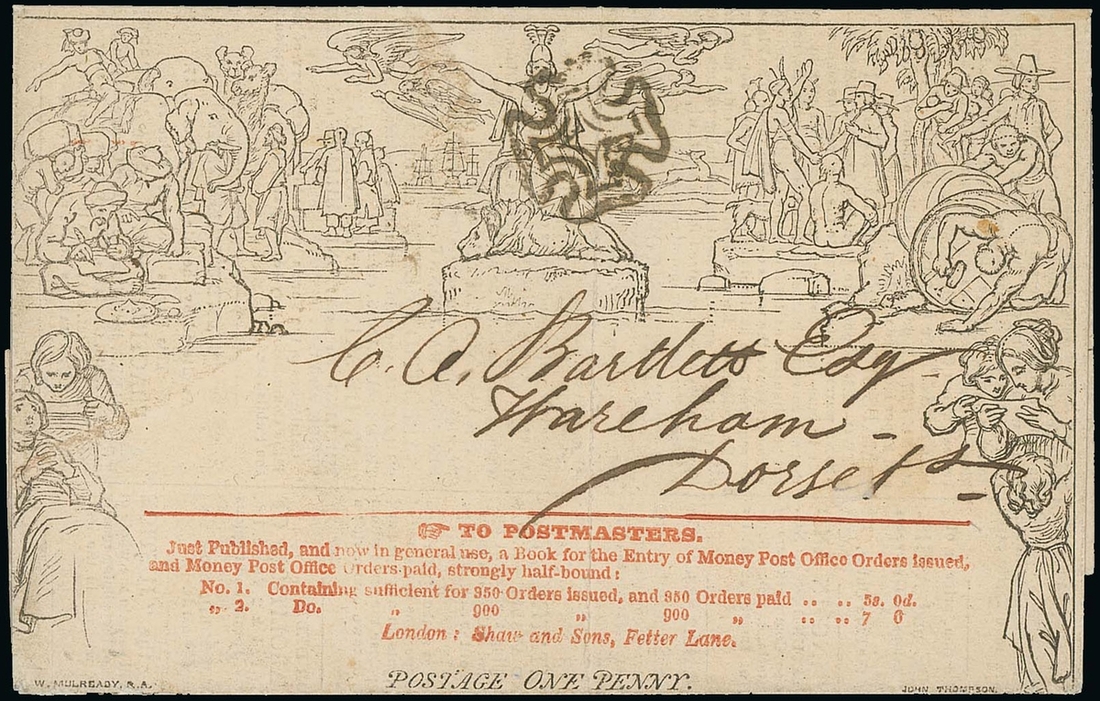 C. A. Bartlett Esq
Wareham -
Dorset
☞ TO POSTMASTERS.
Just Published, and now in general use, a Book for the Entry of Money Post Office Orders issued,
and Money Post Office Orders paid, strongly half-bound:
No. 1. Containing sufficient for 350 Orders issued, and 350 Orders paid .. .. 5s. 0d.
„ 2. Do. „ 900 „ 900 „ .. .. 7 6
London: Shaw and Sons, Fetter Lane.
POSTAGE ONE PENNY.
W. MULREADY, R.A.
JOHN THOMPSON.